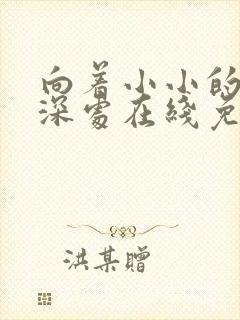 向着小小的
深处在线免
洪某赠